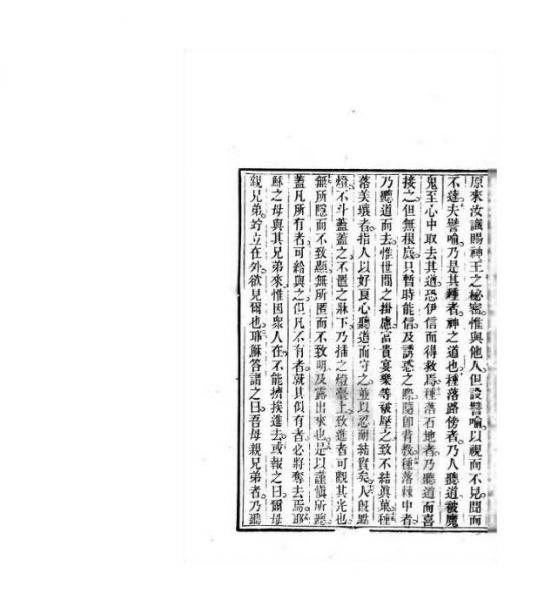 原來汝識賜神王之秘密。惟與他人。但設譬喻。以視而不見。聞而
不達。夫譬喻。乃是其種者。神之道也。種落路傍者。乃人聽道。被魔
鬼至心中取去其道。恐伊信而得救焉。種落石地者。乃聽道而喜
接之。但無根底。只暫時能信。及誘惑之際。隨卽背教。種落棘中者。
乃聽道而去。惟世間之掛慮富貴宴樂等。被壓之致不結眞菓。種
落美壤者。指人以好良心聽道而守之。並以忍耐結實矣。人旣點
燈。不斗蓋蓋之。不置之牀下。乃插之檯臺上。致進者可觀其光也。
無所隱而不致顯。無所匿而不致明。及露出來也。是以謹愼所聽。
蓋凡所有者可給與之。但凡不有者。就其似有者必將奪去焉。耶
穌之母與其兄弟來。惟因衆人在。不能擠挨進去。或報之曰。爾母
親兄弟竚立在外。欲見爾也。耶穌答諸之曰。吾母親兄弟者。乃聽